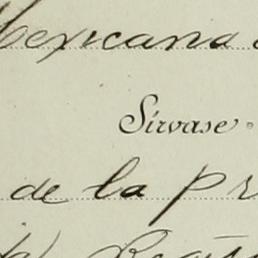 Mexicano
Sírvase
de la pr